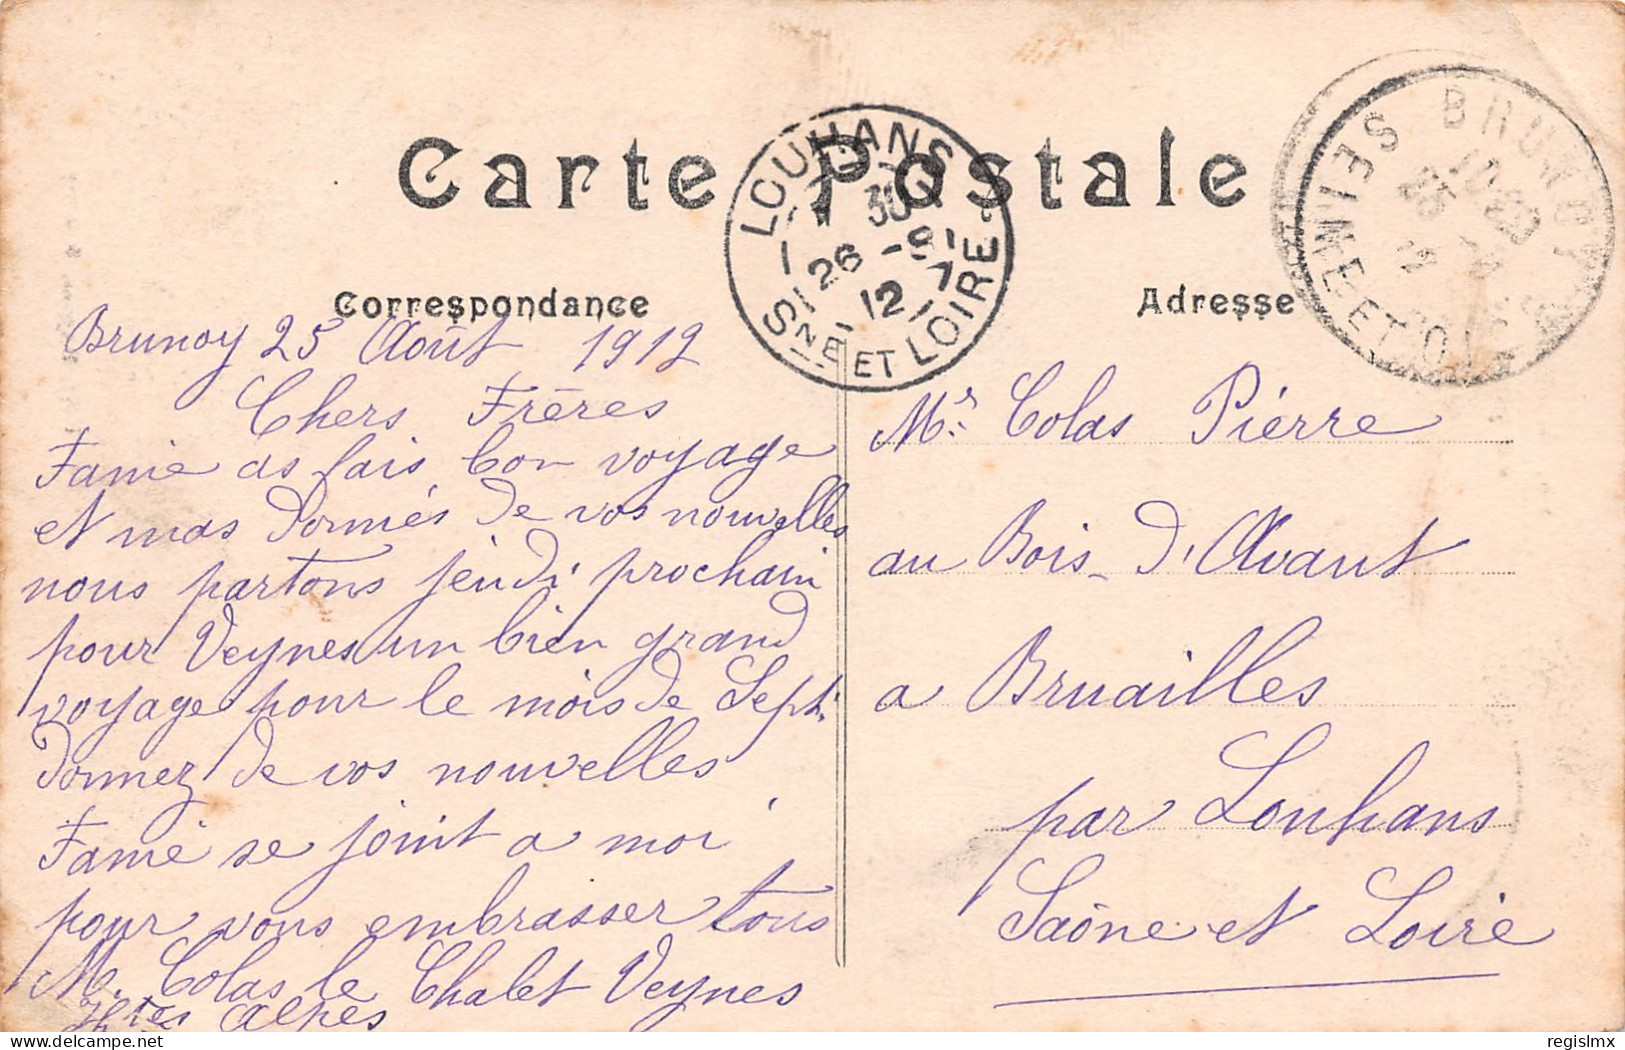 Carte Postale
LOUHANS
7 30
26 - 8
12
SNE ET LOIRE
BRUNOY
SEINE ET OISE
25
12
Correspondance
Adresse
Brunoy 25 Août 1912
Chers Frères
Fanie as fais bon voyage
et mas donnés de vos nouvelles
nous partons jeudi prochain
pour Veynes un bien grand
voyage pour le mois de Sept.
donnez de vos nouvelles
Fanie se joint a moi
pour vous embrasser tous
M. Colas le Chalet Veynes
Htes Alpes
Mr. Colas Pierre
au Bois d'Avant
a Bruailles
par Louhans
Saône et Loire
delcampe.net
regislmx